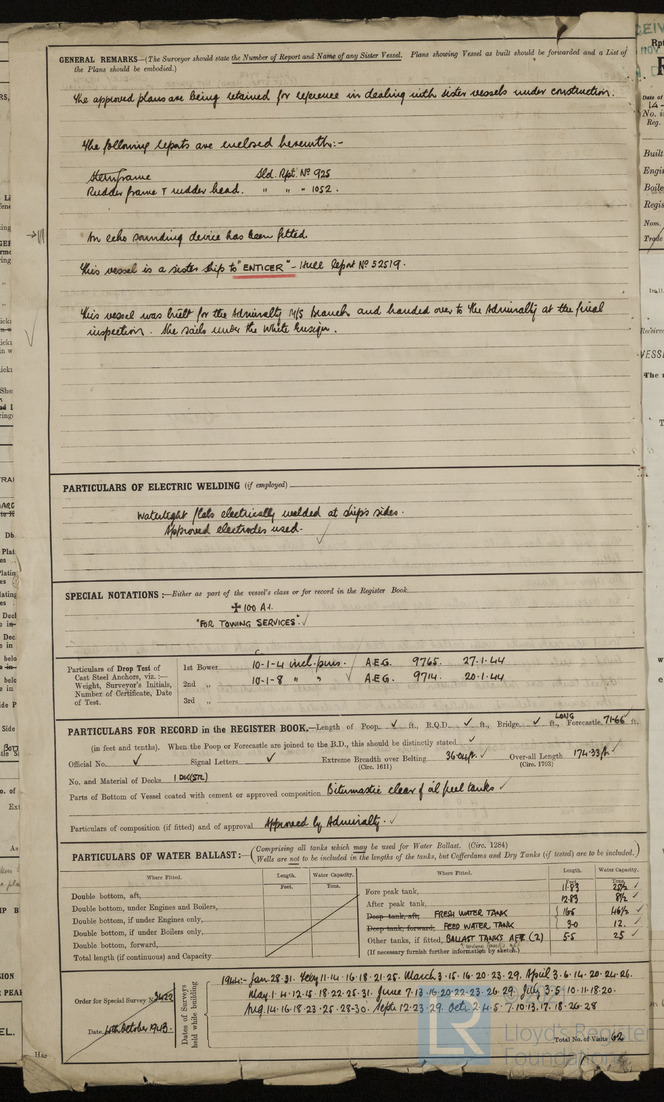 GENERAL REMARKS—(The Surveyor should state the Number of Report and Name of any Sister Vessel. Plans showing Vessel as built should be forwarded and a List of
the Plans should be embodied.)
The approved plans are being retained for reference in dealing with sister vessels under construction.
The following reports are enclosed herewith:-
Sternframe Sld. Rpt. No 925
Rudder frame & rudder head. " " " 1052.
An echo sounding device has been fitted.
This vessel is a sister ship to "ENTICER" - Hull Report No 52519.
This vessel was built for the Admiralty M/S Branch and handed over to the Admiralty at the final
inspection. She sails under the White Ensign.
PARTICULARS OF ELECTRIC WELDING (if employed)
Watertight flats electrically welded at ship's sides.
Approved electrodes used.
SPECIAL NOTATIONS:—Either as part of the vessel's class or for record in the Register Book
✠ 100 A1.
"FOR TOWING SERVICES". ✓
Particulars of Drop Test of
Cast Steel Anchors, viz.:—
Weight, Surveyor's Initials,
Number of Certificate, Date
of Test.
1st Bower 10-1-4 incl. pins. ✓ A.E.G. 9765. 27.1.44
2nd „ 10-1-8 " " ✓ A.E.G. 9714. 20.1.44
3rd „
PARTICULARS FOR RECORD in the REGISTER BOOK.—Length of Poop ✓ ft., R.Q.D. ✓ ft., Bridge ✓ ft., LONG Forecastle 71.66 ft.
(in feet and tenths). When the Poop or Forecastle are joined to the B.D., this should be distinctly stated ✓
Official No. ✓ Signal Letters ✓ Extreme Breadth over Belting ✓ Over-all Length 174.33 ft. ✓
(Circ. 1611) (Circ. 1703)
No. and Material of Decks 1 DK (STL)
Parts of Bottom of Vessel coated with cement or approved composition Bitumastic clear of oil fuel tanks ✓
Particulars of composition (if fitted) and of approval Approved by Admiralty. ✓
PARTICULARS OF WATER BALLAST:—(Comprising all tanks which may be used for Water Ballast. (Circ. 1284)
Wells are not to be included in the lengths of the tanks, but Cofferdams and Dry Tanks (if tested) are to be included.)
Where Fitted. Length. Water Capacity. Where Fitted. Length. Water Capacity.
Feet. Tons. Feet. Tons.
Double bottom, aft, Fore peak tank, 11.83 ✓
Double bottom, under Engines and Boilers, After peak tank, 12.83 8½ ✓
Double bottom, if under Engines only, Deep tank, aft, FRESH WATER TANK 46½ ✓
Double bottom, if under Boilers only, Deep tank, forward, FEED WATER TANK 3.0 12. ✓
Double bottom, forward, Other tanks, if fitted, BALLAST TANKS AFT (2) 5.5 25 ✓
Total length (if continuous) and Capacity (If necessary furnish further information by sketch.)
Order for Special Survey No. 3422
Date 4th October 1943.
Dates of Surveys
held while building
1944:- Jan 28.31. Feby 11.14.16.18.21.25. March 3.15.16.20.23.29. April 3.6.14.20.24.26.
May 1.4.12.15.18.22.25.31. June 7.13.16.20.22.23.26.29. July 3.5.10.11.18.20.
Aug. 14.16.18.23.25.28.30. Septr 12.23.29. Oct. 2.4.5.7.10.13.17.18.26.28
Total No. of Visits 62
Lloyd's Register
Foundation